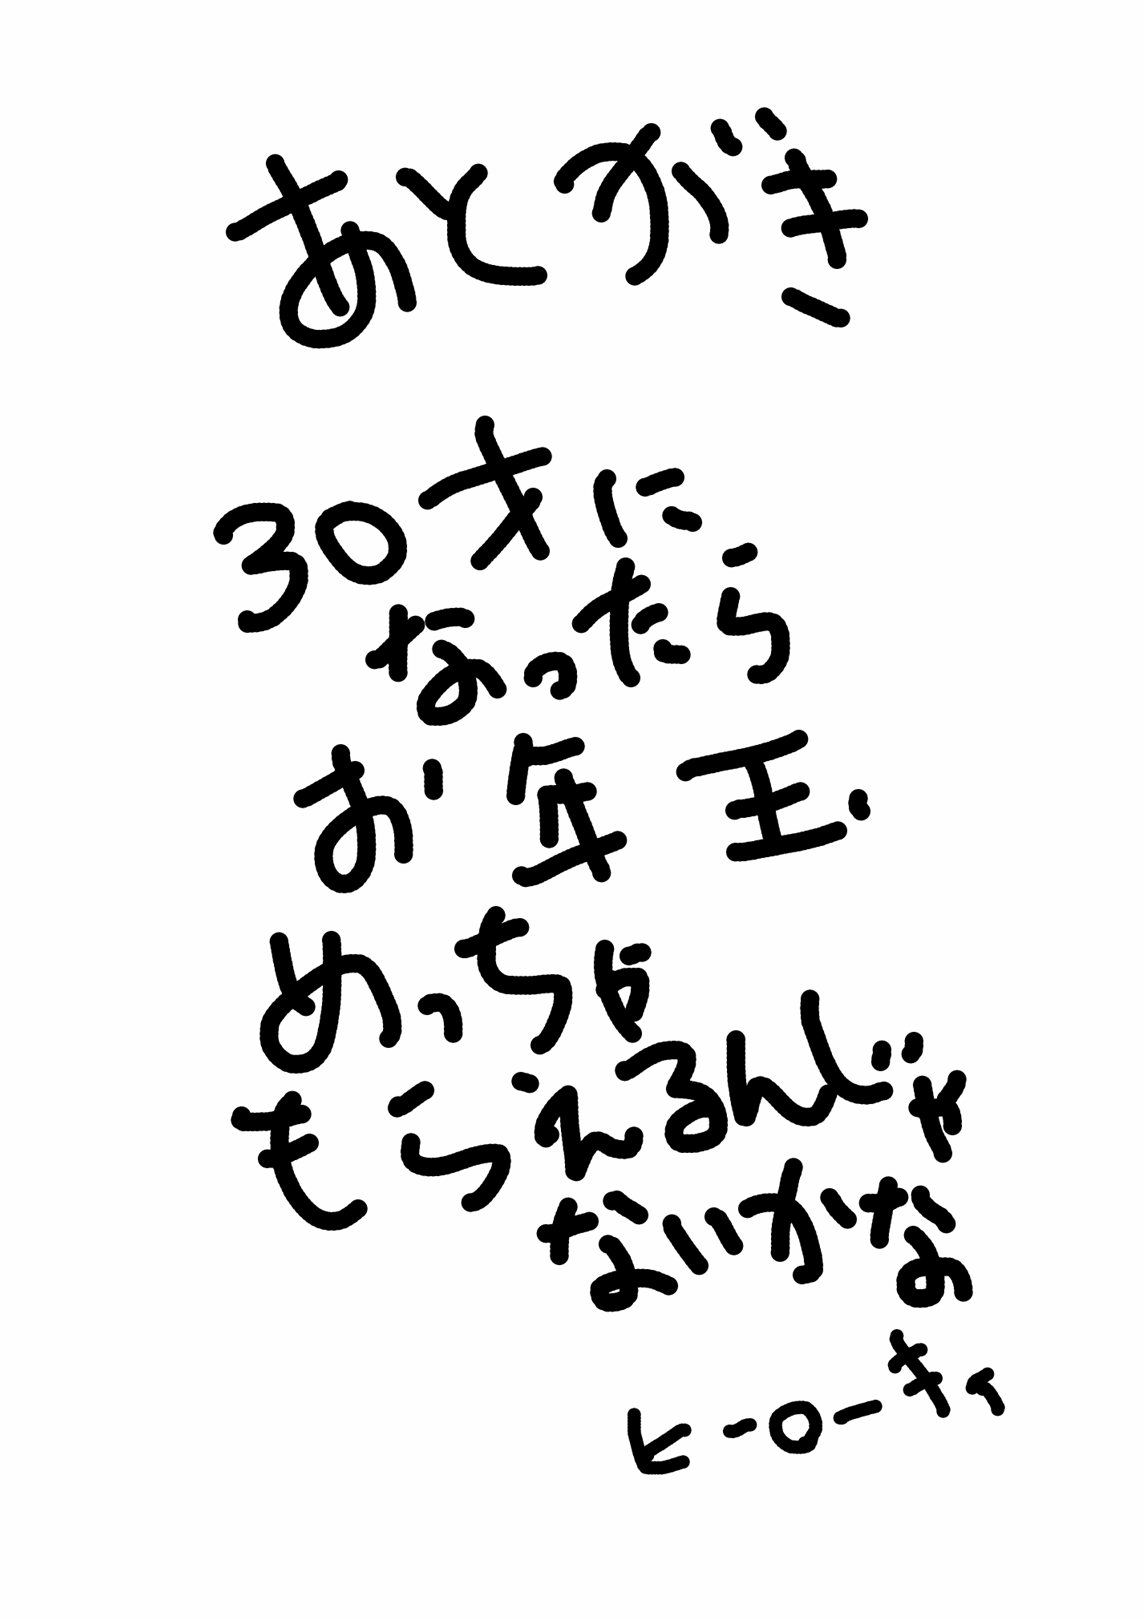 あとがき
30才に
なったら
お年玉
めっちゃ
もらえるんじゃ
ないかな
ヒーローキィ